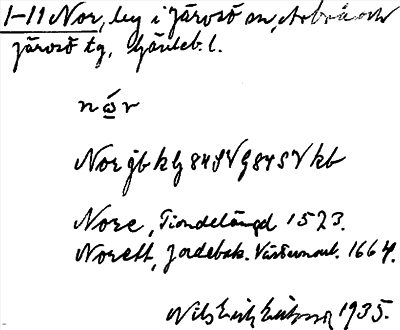 1-11 Nor, by i Järvsö sn, Arbrå och
Järvsö tg, Gävleb. l.
nǻr
Nor jb kg 84SV G84SV kb
Nore, Tiondelängd 1523.
Norett, Jordebok. Västernorrl. 1664.
Nils Erik Eriksson 1935.